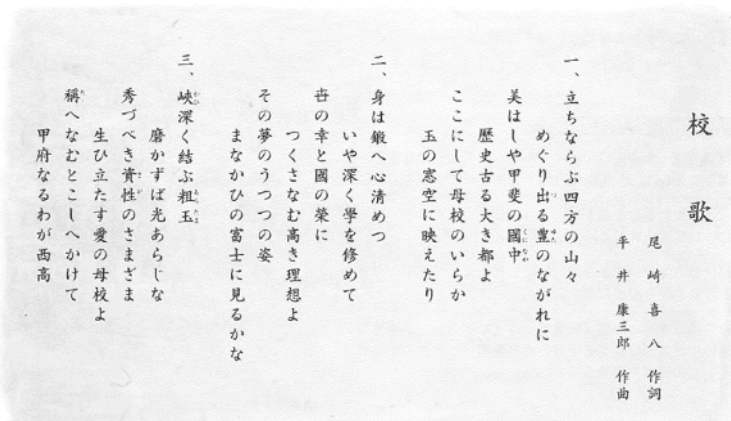 校歌
尾崎喜八 作詞
平井康三郎 作曲
一、立ちならぶ四方の山々
めぐり出る豊のながれに
美はしや甲斐の國中
歴史古る大き都よ
ここにして母校のいらか
玉の窓空に映えたり
二、身は鍛へ心清めつ
いや深く學を修めて
世の幸と國の榮に
つくさなむ高き理想よ
その夢のうつつの姿
まなかひの富士に見るかな
三、峡深く結ぶ粗玉
磨かずば光あらじな
秀づべき資性のさまざま
生ひ立たす愛の母校よ
稱へなむとこしへかけて
甲府なるわが西高